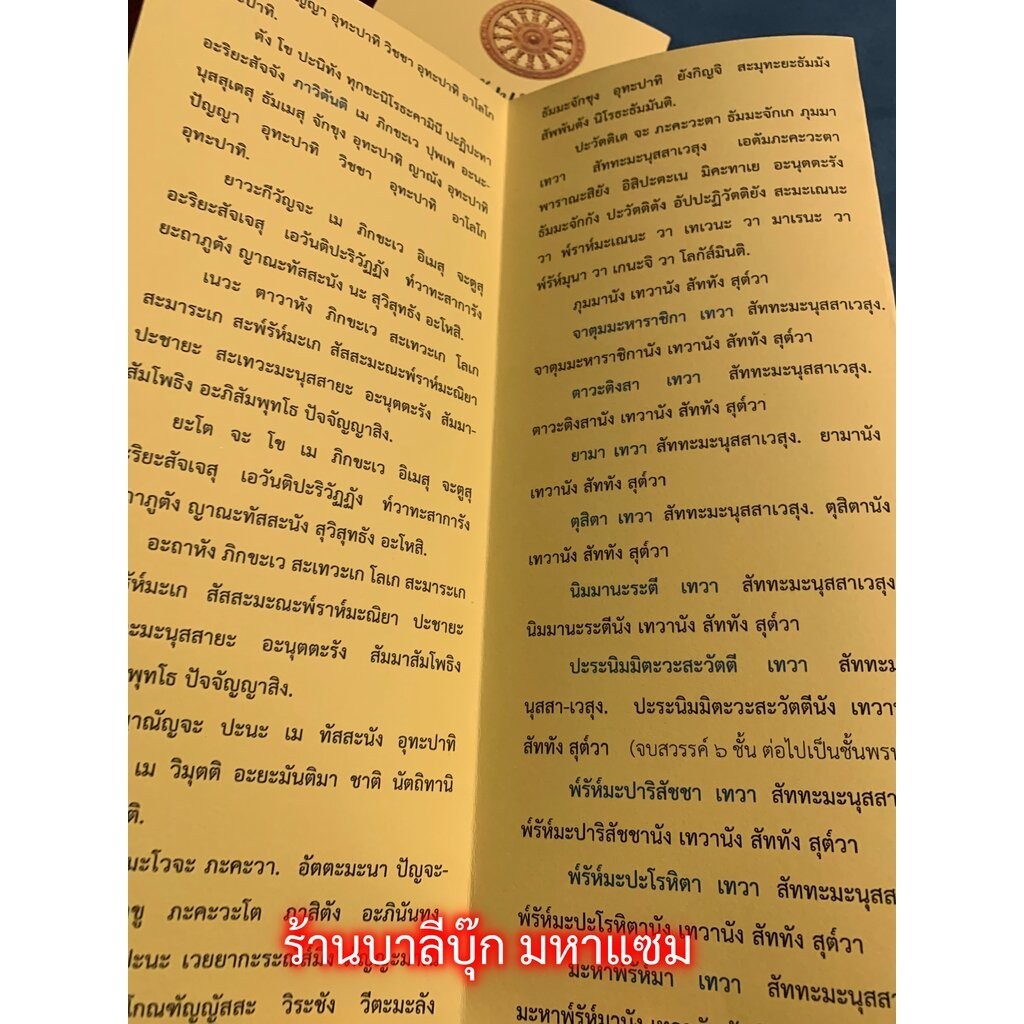 อุทะปาทิ วิชชา อุทะปาทิ อาโลโก
ตัง โข ปะนิทัง ทุกขะนิโรธะคามินี ปะฏิปะทา
อะริยะสัจจัง ภาวิตันติ เม ภิกขะเว ปุพเพ อะนะ-
นุสสุเตสุ ธัมเมสุ จักขุง อุทะปาทิ ญาณัง อุทะปาทิ
ปัญญา อุทะปาทิ วิชชา อุทะปาทิ อาโลโก
อุทะปาทิ.
ยาวะกีวัญจะ เม ภิกขะเว อิเมสุ จะตูสุ
อะริยะสัจเจสุ เอวันติปะริวัฏฏัง ท๎วาทะสาการัง
ยะถาภูตัง ญาณะทัสสะนัง นะ สุวิสุทธัง อะโหสิ.
เนวะ ตาวาหัง ภิกขะเว สะเทวะเก โลเก
สะมาระเก สะพ๎รัห๎มะเก สัสสะมะณะพ๎ราห๎มะณิยา
ปะชายะ สะเทวะมะนุสสายะ อะนุตตะรัง สัมมา-
สัมโพธิง อะภิสัมพุทโธ ปัจจัญญาสิง.
ยะโต จะ โข เม ภิกขะเว อิเมสุ จะตูสุ
ริยะสัจเจสุ เอวันติปะริวัฏฏัง ท๎วาทะสาการัง
าภูตัง ญาณะทัสสะนัง สุวิสุทธัง อะโหสิ.
อะถาหัง ภิกขะเว สะเทวะเก โลเก สะมาระเก
รัห๎มะเก สัสสะมะณะพ๎ราห๎มะณิยา ปะชายะ
ะมะนุสสายะ อะนุตตะรัง สัมมาสัมโพธิง
พุทโธ ปัจจัญญาสิง.
ญาณัญจะ ปะนะ เม ทัสสะนัง อุทะปาทิ
เม วิมุตติ อะยะมันติมา ชาติ นัตถิทานิ
ติ.
มะโวจะ ภะคะวา. อัตตะมะนา ปัญจะ-
ขู ภะคะวะโต ภาสิตัง อะภินันทุง
ปะนะ เวยยากะระณัส๎มิง
โกณฑัญญัสสะ วิระชัง วีตะมะลัง
ธัมมะจักขุง อุทะปาทิ ยังกิญจิ สะมุทะยะธัมมัง
สัพพันตัง นิโรธะธัมมันติ.
ปะวัตติเต จะ ภะคะวะตา ธัมมะจักเก ภุมมา
เทวา สัททะมะนุสสาเวสุง เอตัมภะคะวะตา
พาราณะสิยัง อิสิปะตะเน มิคะทาเย อะนุตตะรัง
ธัมมะจักกัง ปะวัตติตัง อัปปะฏิวัตติยัง สะมะเณนะ
วา พ๎ราห๎มะเณนะ วา เทเวนะ วา มาเรนะ วา
พ๎รัห๎มุนา วา เกนะจิ วา โลกัส๎มินติ.
ภุมมานัง เทวานัง สัททัง สุต๎วา
จาตุมมะหาราชิกา เทวา สัททะมะนุสสาเวสุง.
จาตุมมะหาราชิกานัง เทวานัง สัททัง สุต๎วา
ตาวะติงสา เทวา สัททะมะนุสสาเวสุง.
ตาวะติงสานัง เทวานัง สัททัง สุต๎วา
ยามา เทวา สัททะมะนุสสาเวสุง. ยามานัง
เทวานัง สัททัง สุต๎วา
ตุสิตา เทวา สัททะมะนุสสาเวสุง. ตุสิตานัง
เทวานัง สัททัง สุต๎วา
นิมมานะระตี เทวา สัททะมะนุสสาเวสุง
นิมมานะระตีนัง เทวานัง สัททัง สุต๎วา
ปะระนิมมิตะวะสะวัตตี เทวา สัททะม
นุสสา-เวสุง. ปะระนิมมิตะวะสะวัตตีนัง เทวา
สัททัง สุต๎วา (จบสวรรค์ ๖ ชั้น ต่อไปเป็นชั้นพรห
พ๎รัห๎มะปาริสัชชา เทวา สัททะมะนุสสา
พ๎รัห๎มะปาริสัชชานัง เทวานัง สัททัง สุต๎วา
พ๎รัห๎มะปะโรหิตา เทวา สัททะมะนุสส
พ๎รัห๎มะปะโรหิตานัง เทวานัง สัททัง สุต๎วา
มะหาพ๎รัห๎มา เทวา สัททะมะนุสส
มะหาพ๎รัห๎มานัง เทวานัง สัททัง
ร้านบาลีบุ๊ก มหาแซม